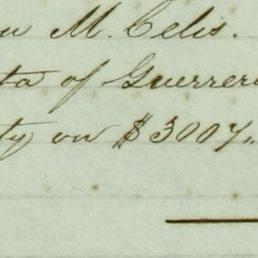 M. Celis.
of Guerrero
on $3007